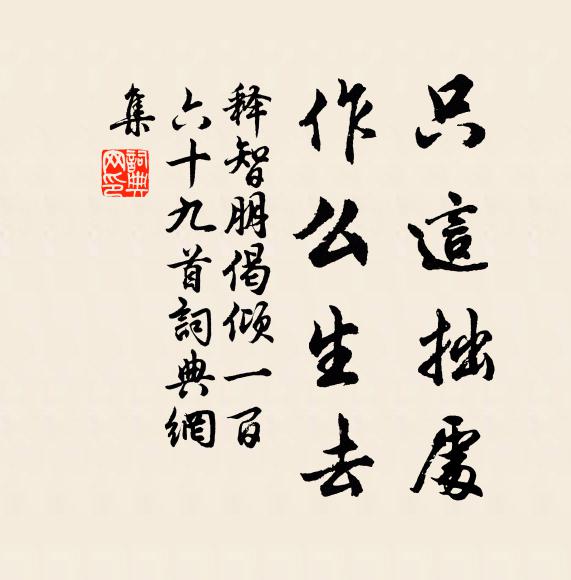 只這拙處
作么生去
释智朋偈倾一百
六十九首詞典網
集
詞典
网印